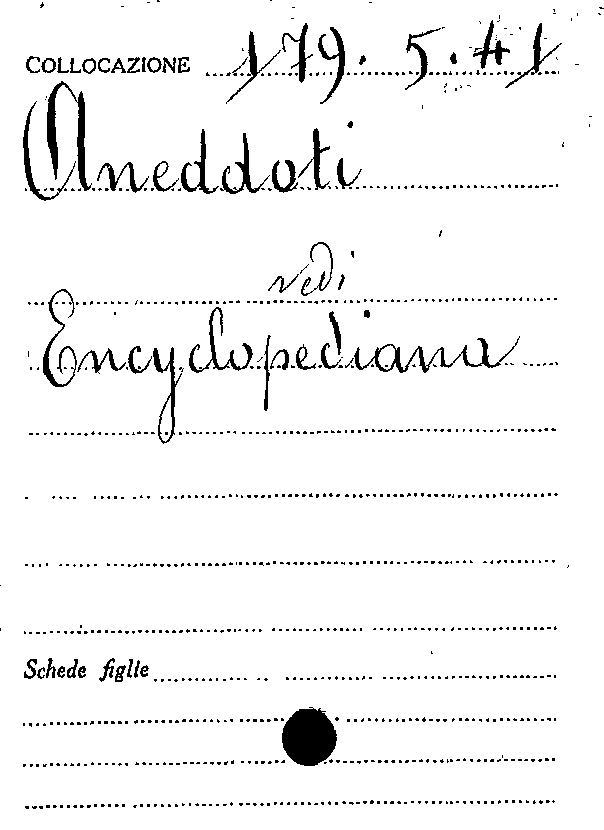 COLLOCAZIONE 179. 5. 41
Aneddoti
vedi
Encyclopediana
Schede figlie